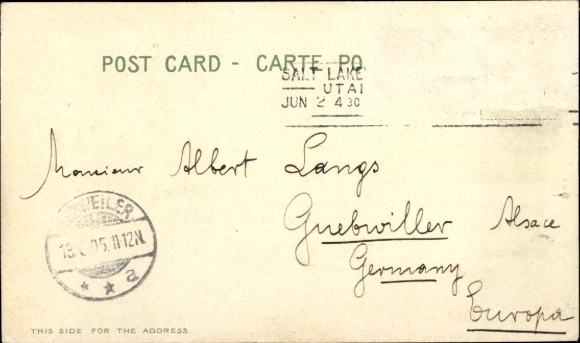 POST CARD - CARTE PO
SALT LAKE
UTAH
JUN 2 4 30
Monsieur Albert Langs
Guebwiller Alsace
Germany
Europa
WEILER
05.11-12N.
* * a
THIS SIDE FOR THE ADDRESS